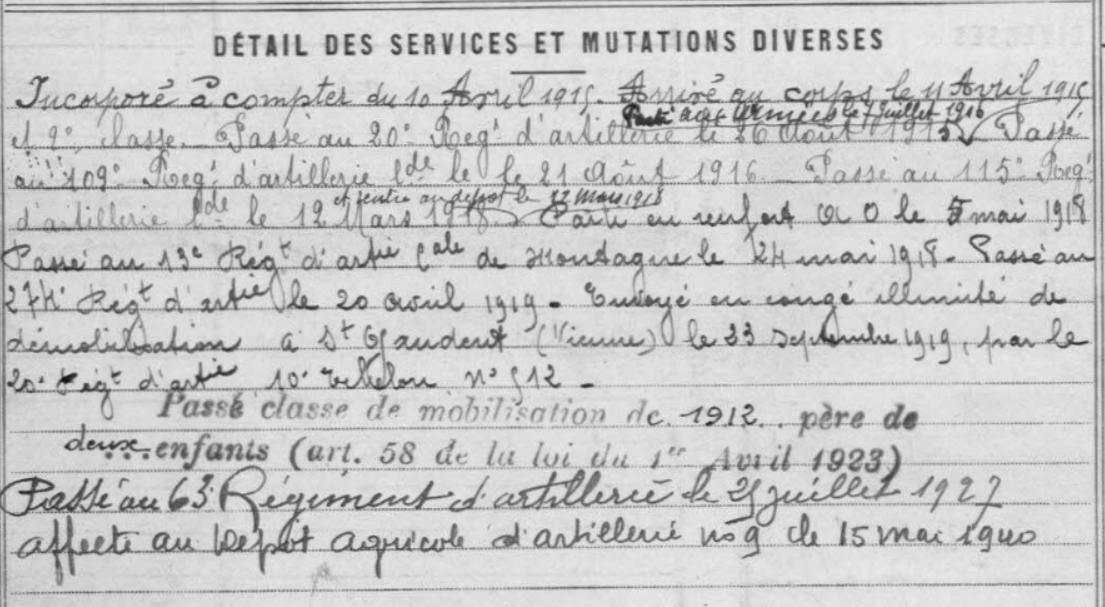 DÉTAIL DES SERVICES ET MUTATIONS DIVERSES
Incorporé à compter du 10 Avril 1915. Arrivé au corps le 11 Avril 1915
Parti aux Armées le 7 juillet 1916
et 2e classe. Passé au 20e Regt d'artillerie le 26 Août 1915 Passé
au 109e Regt d'artillerie lde le 21 Août 1916. Passé au 115e Regt
et rentré au dépot le 22 Mars 1918
d'artillerie lde le 12 Mars 1918. Parti en renfort A O le 5 mai 1918
Passé au 13e Régt d'artie de Montagne le 24 mai 1918. Passé au
274e Régt d'artie le 20 avril 1919. Envoyé en congé illimité de
démobilisation à St Gaudent (Vienne) le 23 Septembre 1919, par le
20e Régt d'artie 10e Echelon n° 512.
Passé classe de mobilisation de 1912. père de
deux enfants (art. 58 de la loi du 1er Avril 1923)
Passé au 63e Régiment d'artillerie le 25 juillet 1927
affecté au Dépôt agricole d'artillerie no 9 le 15 mai 1940